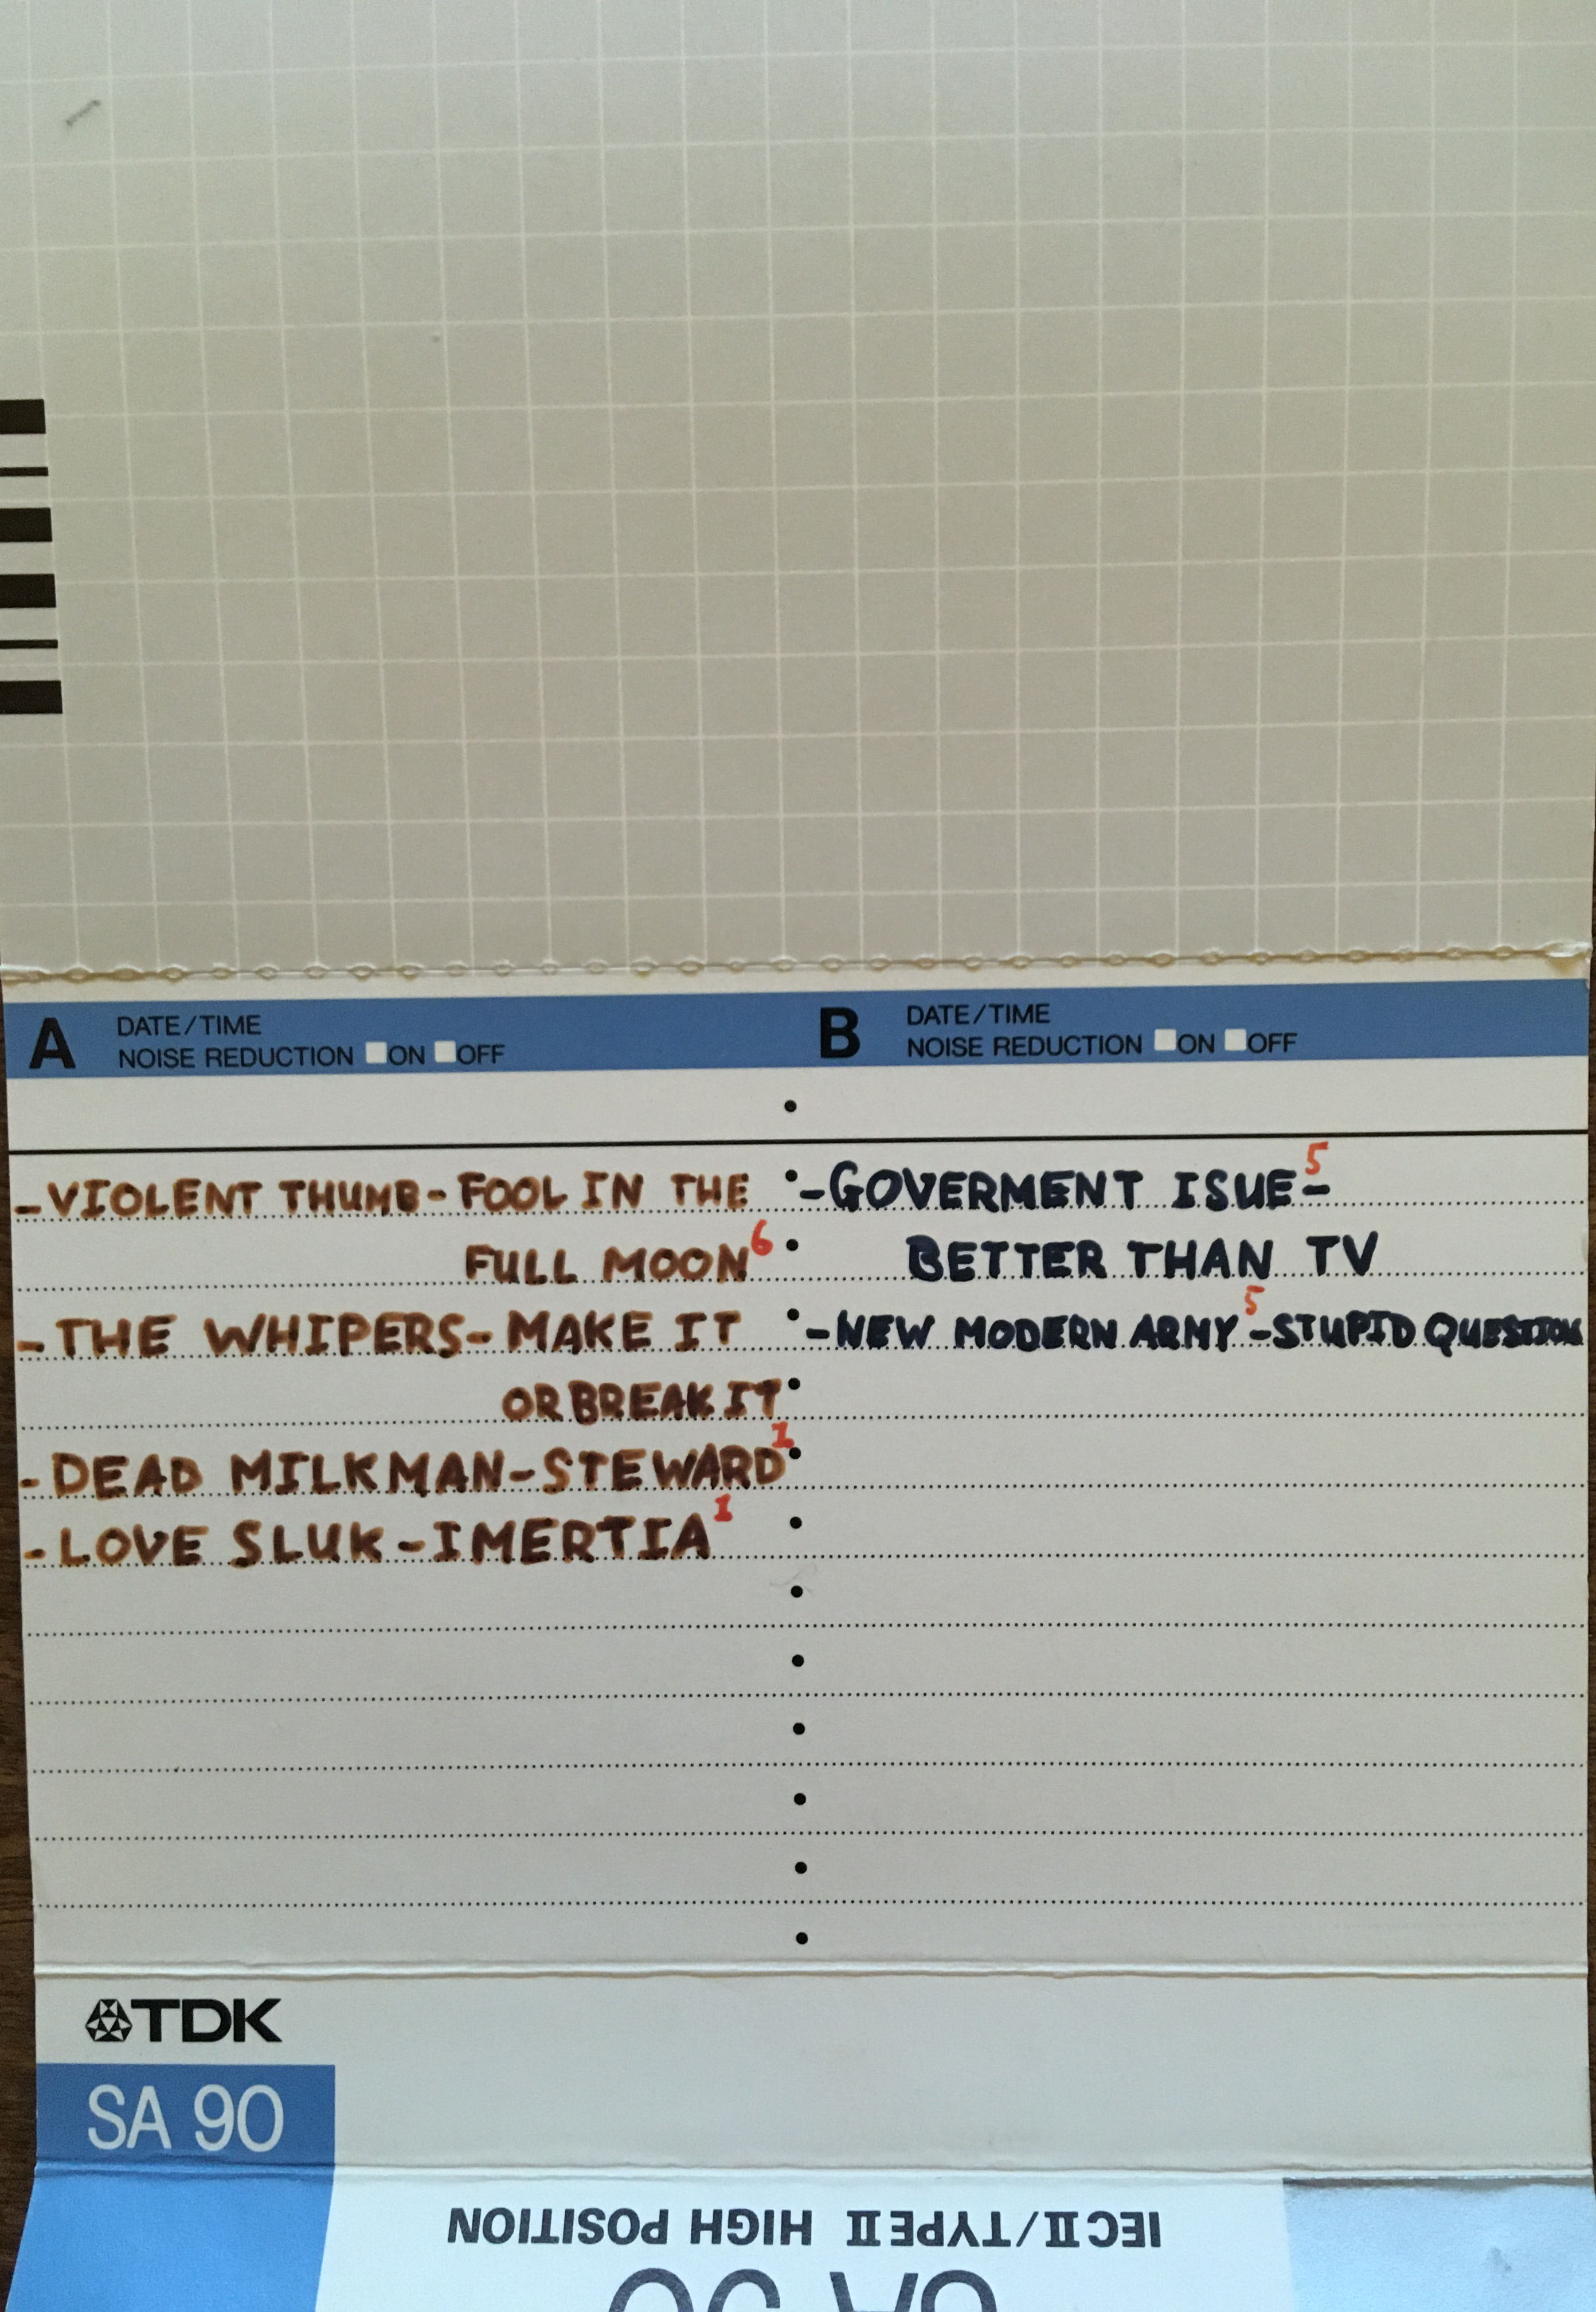 A DATE/TIME
NOISE REDUCTION ON OFF
B DATE/TIME
NOISE REDUCTION ON OFF
-VIOLENT THUMB-FOOL IN THE
FULL MOON 6
-THE WHIPERS-MAKE IT
OR BREAK IT
-DEAD MILKMAN-STEWARD 1
-LOVE SLUK-IMERTIA 1
-GOVERMENT ISUE 5-
BETTER THAN TV
-NEW MODERN ARMY 5-STUPID QUESTION
TDK
SA 90
IEC II/TYPE II HIGH POSITION
SA 90